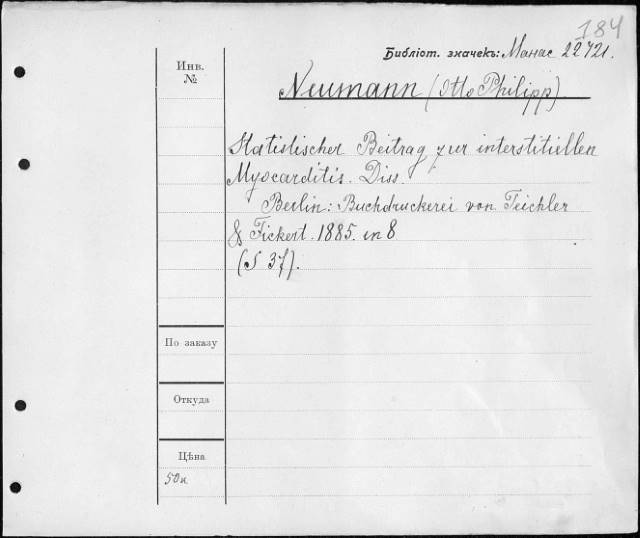 184
Библіот. значекъ: Манас 22721.
Инв.
№
Neumann (Otto Philipp).
Statistischer Beitrag zur interstitiellen
Myocarditis. Diss.
Berlin: Buchdruckerei von Feichler
& Fickert. 1885. in 8
(S 37).
По заказу
Откуда
Цѣна
50к